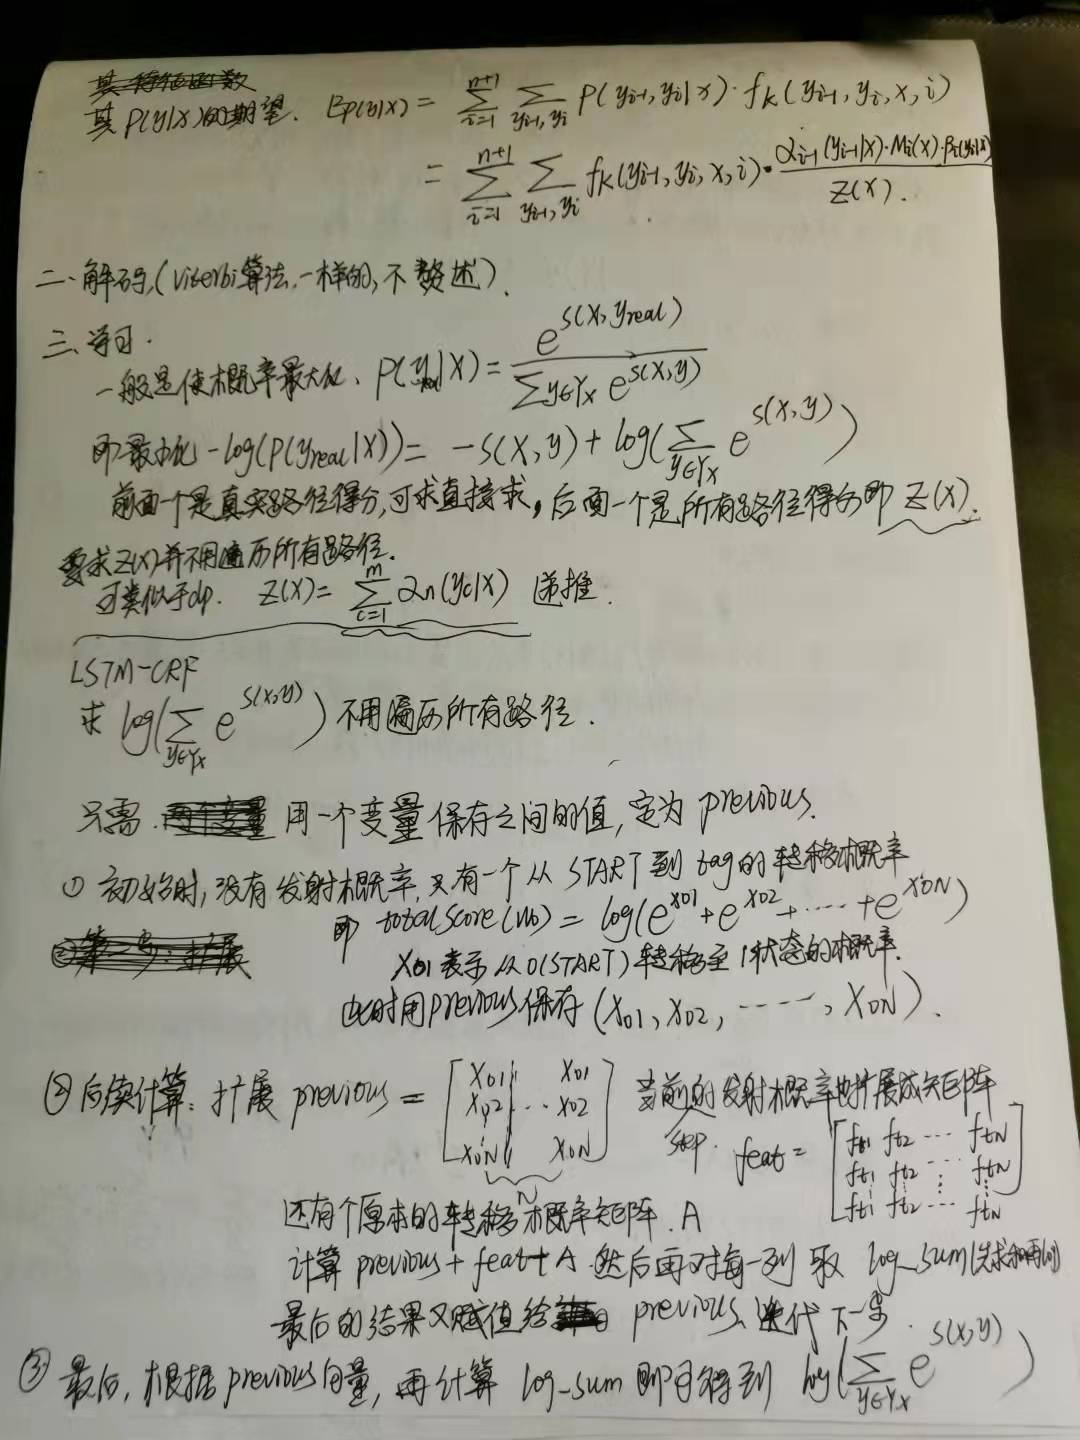 其特征函数
其P(y|x)的期望. Ep(y|x) = ∑_{i=1}^{n+1} ∑_{y_{i-1},y_i} P(y_{i-1},y_i|x)·f_k(y_{i-1},y_i,x,i)
= ∑_{i=1}^{n+1} ∑_{y_{i-1},y_i} f_k(y_{i-1},y_i,x,i)·\frac{α_{i-1}(y_{i-1}|x)·M_i(x)·β_i(y_i|x)}{Z(x)}.
二、解码,(Viterbi算法,一样的,不赘述).
三、学习.
一般是使概率最大化、P(y_{real}|X) = \frac{e^{S(X,y_{real})}}{∑_{y∈Y_X} e^{S(X,y)}}
即最小化 -log(P(y_{real}|X)) = -S(X,y) + log(∑_{y∈Y_X} e^{S(X,y)})
前面一个是真实路径得分,可求直接求,后面一个是所有路径得分即 Z(X).
要求Z(x)并不用遍历所有路径.
可类似于dp. Z(X) = ∑_{c=1}^{m} α_n(y_c|X) 递推.
LSTM-CRF
求 log(∑_{y∈Y_X} e^{S(X,y)}) 不用遍历所有路径.
只需. 两个变量 用一个变量保存之间的值,定为 previous.
① 初始时,没有发射概率,只有一个从 START 到 tag的转移概率
即 total score(n_0) = log(e^{x_{01}} + e^{x_{02}} + ···· + e^{x_{0N}})
②第二步:扩展
X_{01} 表示从0(START)转移至1状态的概率.
此时用previous保存 (X_{01}, X_{02}, ----, X_{0N}).
② 后续计算: 扩展 previous = [X_{01} X_{01} X_{02} ··· X_{02} X_{0N} X_{0N}] 当前的发射概率也扩展成矩阵
N step. feat = [f_{t1} f_{t2} ··· f_{tN} f_{t1} f_{t2} ··· f_{tN} f_{t1} f_{t2} ··· f_{tN}]
还有个原本的转移概率矩阵. A
计算 previous + feat + A 然后再对每一列 取 log_sum(先求和再log)
最后的结果又赋值给 previous、迭代下一步.
③ 最后,根据 previous 向量,再计算 log-sum 即可得到 log(∑_{y∈Y_X} e^{S(X,y)})